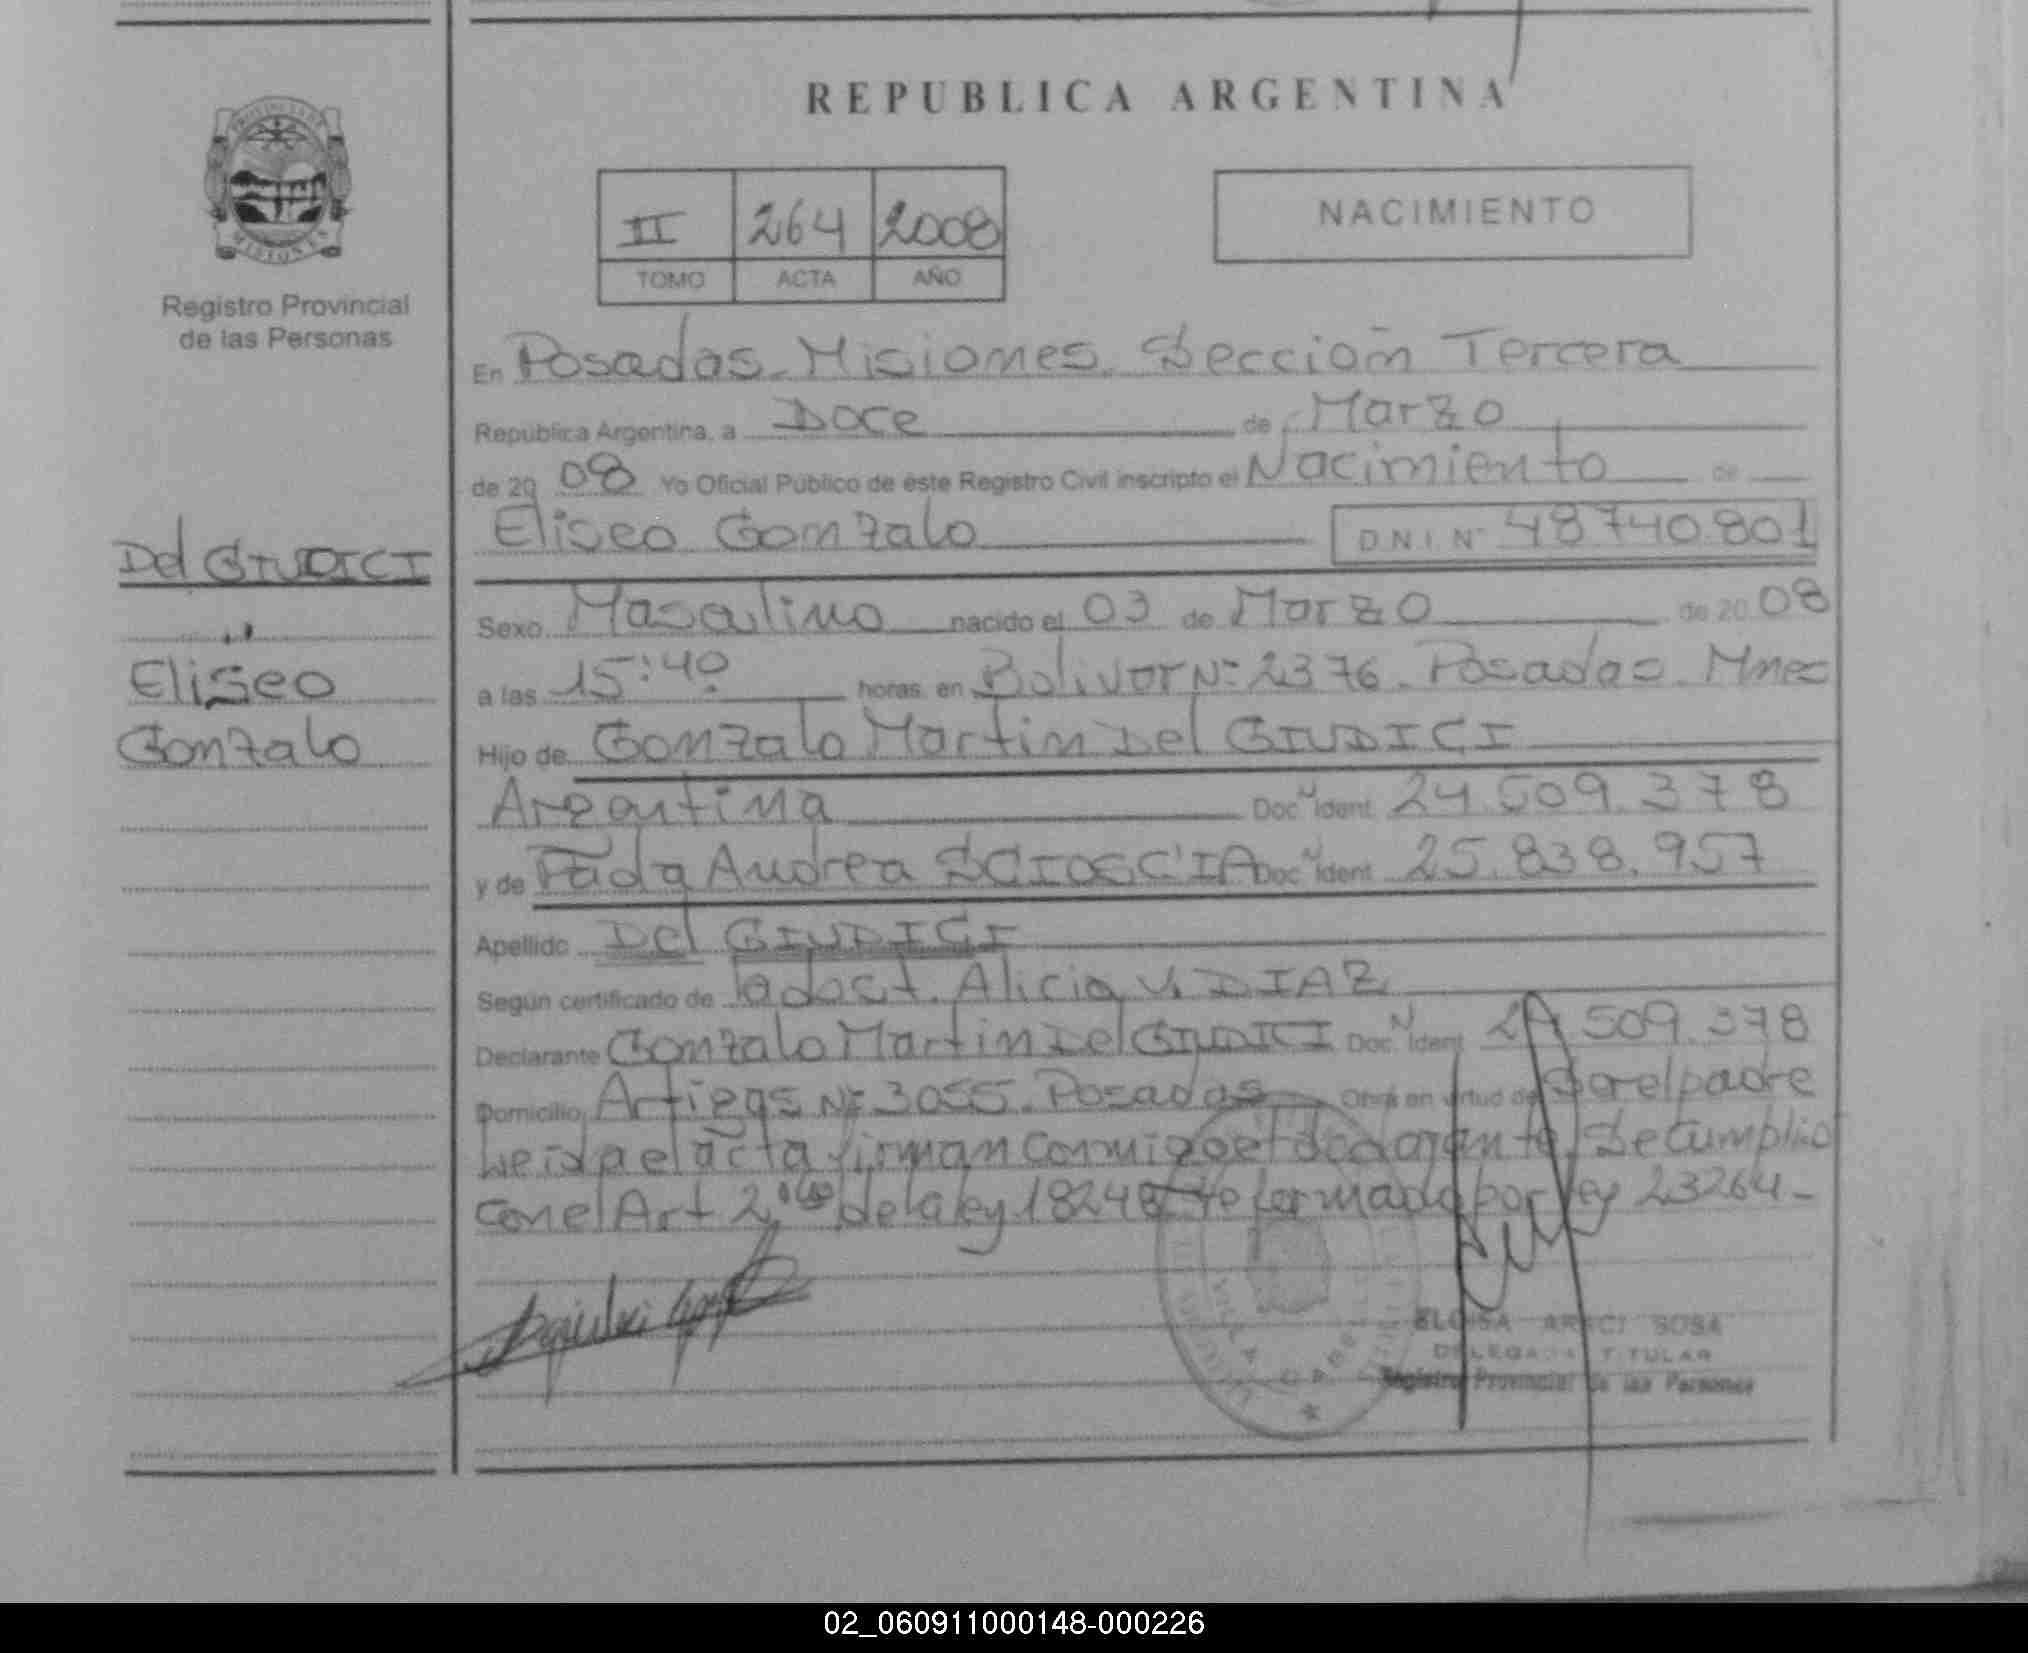 REPUBLICA ARGENTINA
PROVINCIA DE
MISIONES
Registro Provincial
de las Personas
II 264 2008
TOMO ACTA AÑO
NACIMIENTO
En Posadas - Misiones. Sección Tercera
República Argentina, a Doce de Marzo
de 2008 Yo Oficial Público de éste Registro Civil inscripto el Nacimiento de
Eliseo Gonzalo D.N.I. Nº 48740.801
Del GIUDICI
Eliseo
Gonzalo
Sexo Masculino nacido el 03 de Marzo de 2008
a las 15:40 horas en Bolivar Nº 2376. Posadas. Mnes
Hijo de Gonzalo Martin Del GIUDICI
Argentina Doc. Ident. 24.509.378
y de Andrea SCIOSCIA Doc. Ident. 25.838.957
Apellido Del GIUDICI
Según certificado de la Alicia V. DIAZ
Declarante Gonzalo Martin Del GIUDICI Doc. Ident. 24.509.378
Domicilio Artigas Nº 3055. Posadas Obra en virtud de Ser el padre
Leida el acta firman conmigo el declarante. Se cumplio
con el Art 2 de la ley 18248 reformada por ley 23264-
ELOISA ARACI SOSA
DELEGADA TITULAR
Registro Provincial de las Personas
02_060911000148-000226